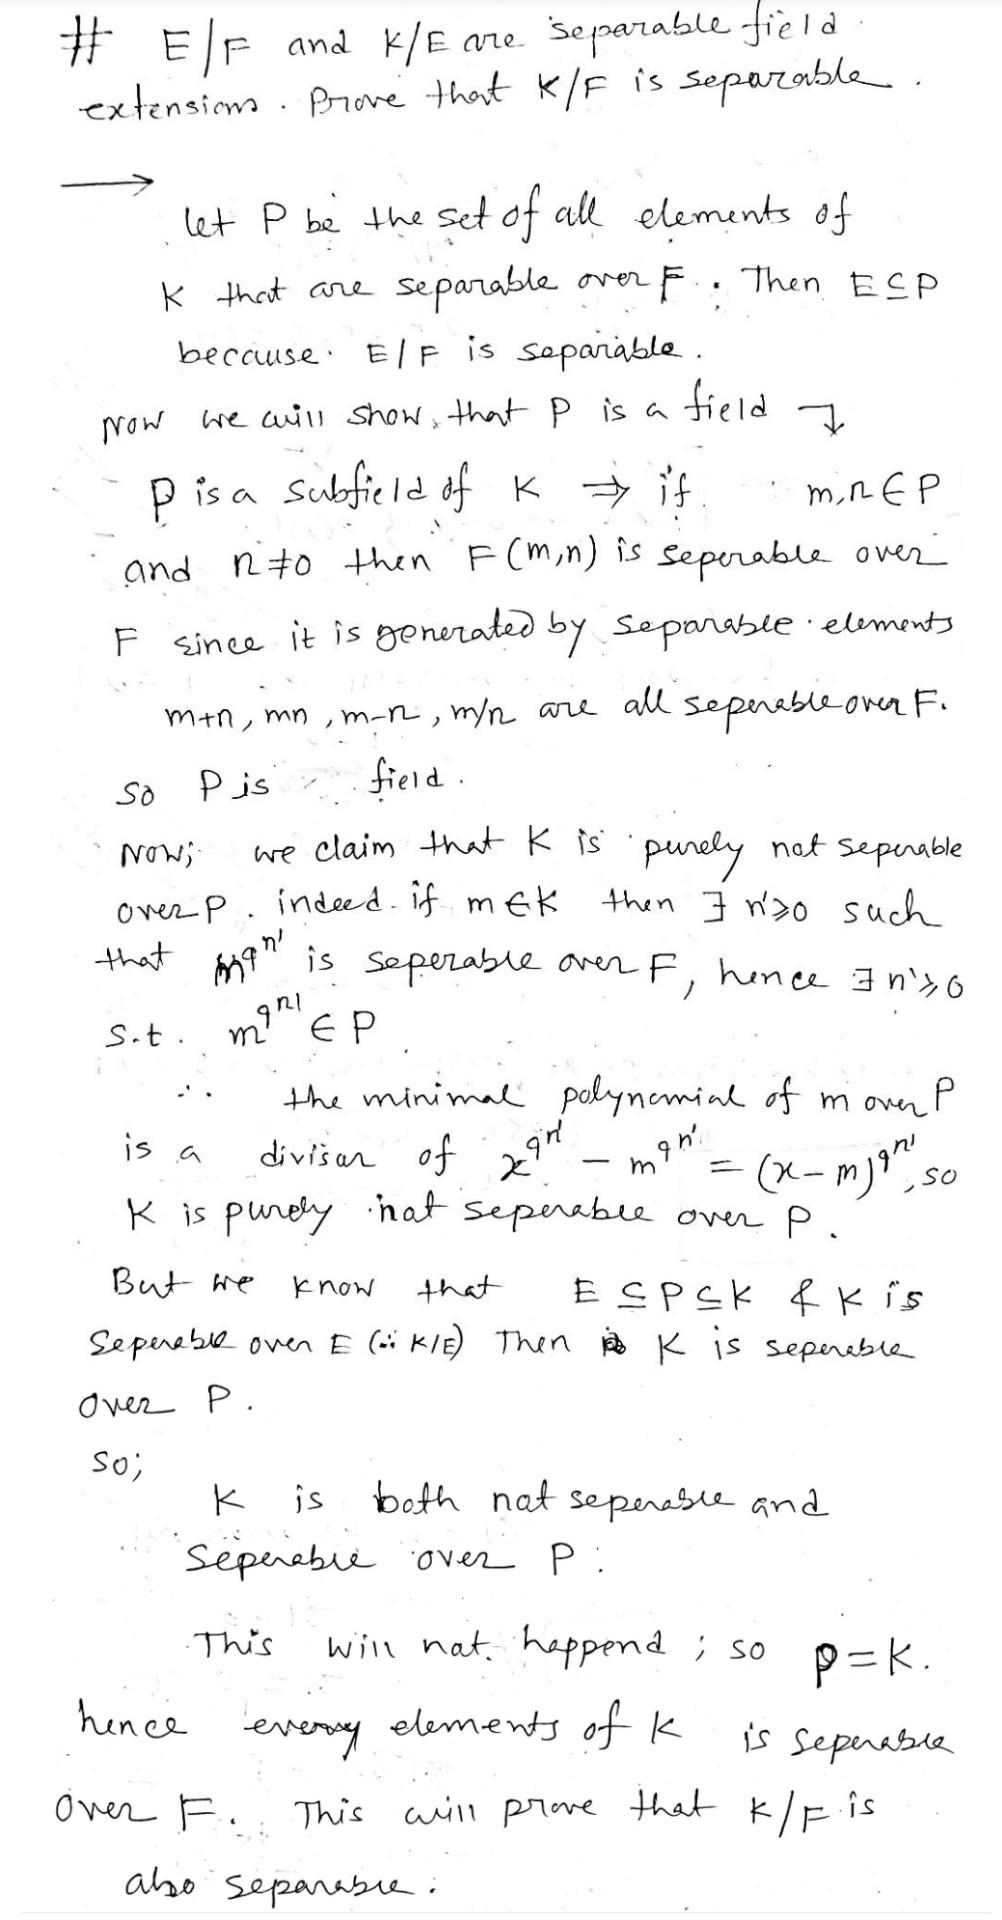 # E/F and K/E are separable field
extensions. Prove that K/F is separable.
→
let P be the set of all elements of
K that are separable over F. Then E⊆P
because E/F is separable.
Now we will show, that P is a field ↴
P is a subfield of K ⇒ if m,n∈P
and n≠0 then F(m,n) is seperable over
F since it is generated by separable elements
m+n, mn, m-n, m/n are all seperable over F.
So P is field.
Now; we claim that K is purely not seperable
over P. indeed if m∈K then ∃ n'≥0 such
that m^{q^{n'}} is seperable over F, hence ∃ n'≥0
s.t. m^{q^{n'}} ∈ P
∴ the minimal polynomial of m over P
is a divisor of x^{q^{n'}} - m^{q^{n'}} = (x-m)^{q^{n'}}, so
K is purely not seperable over P.
But we know that E⊆P⊆K & K is
Seperable over E (∵ K/E) Then K is seperable
over P.
So;
K is both not seperable and
Seperable over P.
This will not happend; so P=K.
hence every elements of K is seperable
over F. This will prove that K/F is
also separable.